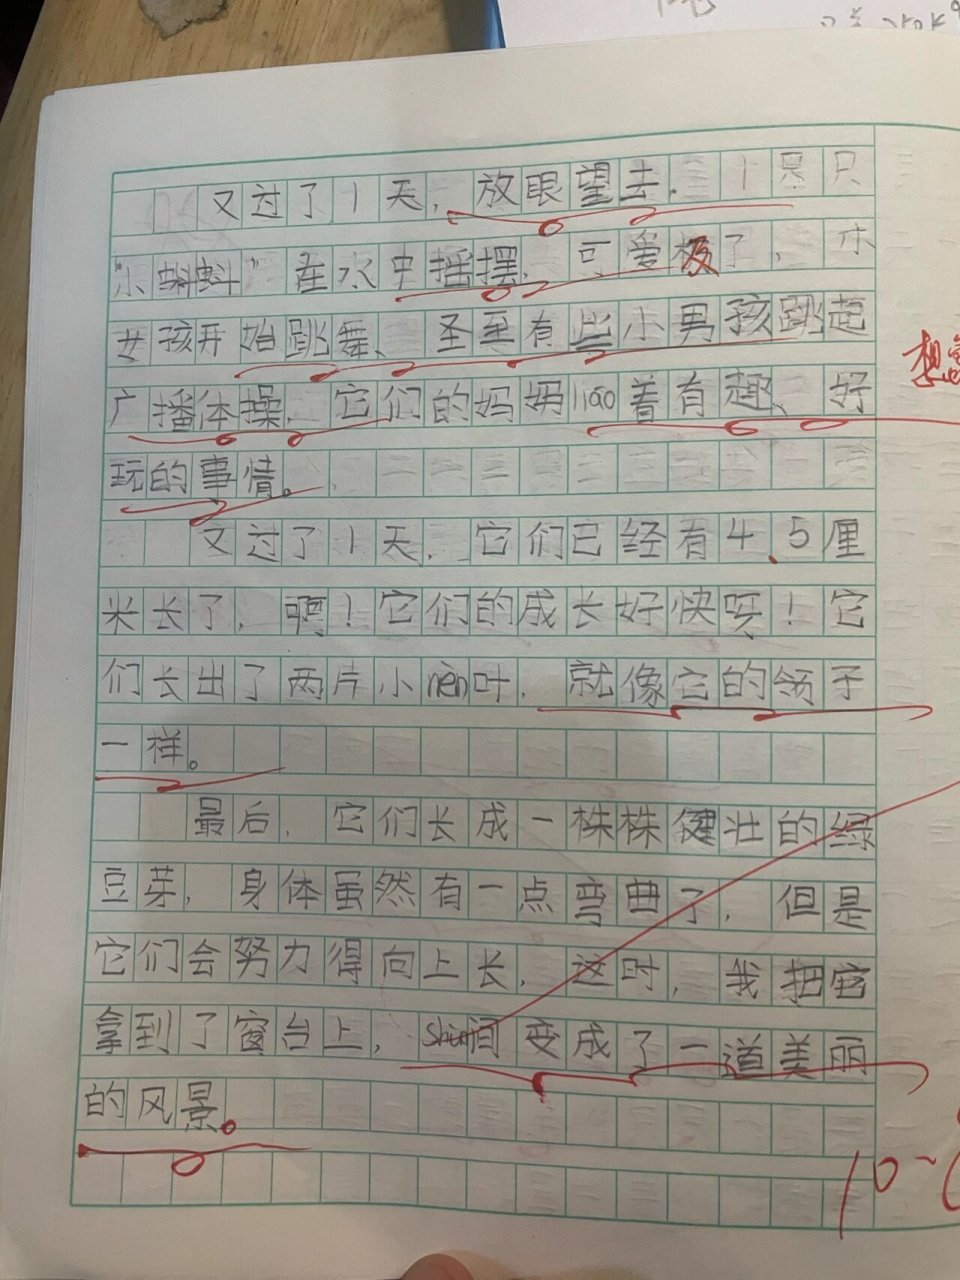 又过了1天，放眼望去，一只只
"小蝌蚪"在水中摇摆，可爱极了，
女孩开始跳舞、圣至有些小男孩跳起
广播体操，它们的妈妈liáo着有趣、好
玩的事情。
又过了1天，它们已经有4、5厘
米长了，啊！它们的成长好快呀！它
们长出了两片小nèn叶，就像它的领子
一样。
最后，它们长成一株株健壮的绿
豆芽，身体虽然有一点弯曲了，但是
它们会努力得向上长，这时，我把它
拿到了窗台上，shùn间变成了一道美丽
的风景。
想
10-